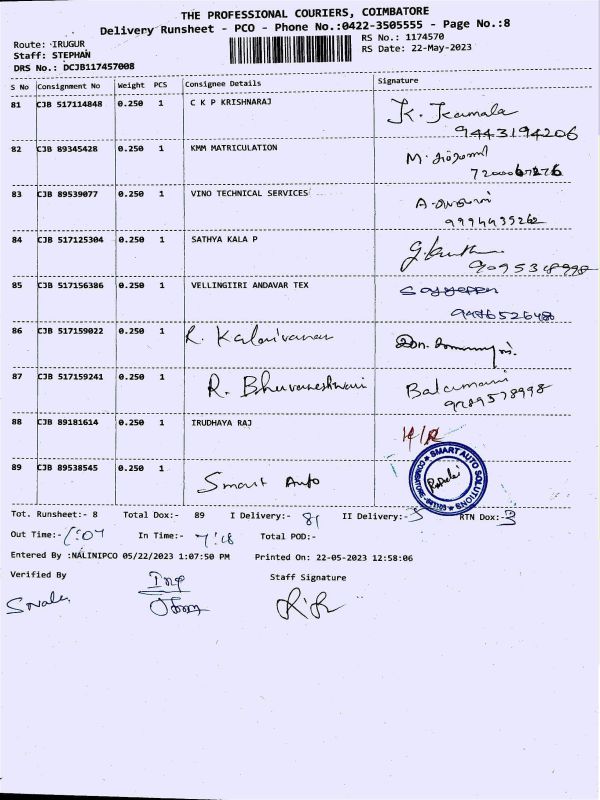 THE PROFESSIONAL COURIERS, COIMBATORE
Delivery Runsheet - PCO - Phone No.:0422-3505555 - Page No.:8
Route: IRUGUR
RS No.: 1174570
Staff: STEPHAN
RS Date: 22-May-2023
DRS No.: DCJB117457008
S No Consignment No Weight PCS Consignee Details Signature
81 CJB 517114848 0.250 1 C K P KRISHNARAJ K. Kamala
9443194206
82 CJB 89345428 0.250 1 KMM MATRICULATION M.
83 CJB 89539077 0.250 1 VINO TECHNICAL SERVICES
9994435262
84 CJB 517125304 0.250 1 SATHYA KALA P
85 CJB 517156386 0.250 1 VELLINGIIRI ANDAVAR TEX
86 CJB 517159022 0.250 1 R. Kalaivanan
87 CJB 517159241 0.250 1 R. Bhuvaneshwari Balamani
88 CJB 89181614 0.250 1 IRUDHAYA RAJ
89 CJB 89538545 0.250 1 Smart Auto SMART AUTO SOLUTIONS
Tot. Runsheet:- 8 Total Dox:- 89 I Delivery:- 81 II Delivery:-5 RTN Dox:-3
Out Time:- In Time:- Total POD:-
Entered By :NALINIPCO 05/22/2023 1:07:50 PM Printed On: 22-05-2023 12:58:06
Verified By Staff Signature